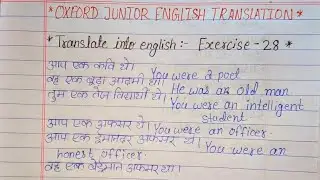 *OXFORD JUNIOR ENGLISH TRANSLATION*
*Translate into english:- Exercise-28 *
आप एक कवि थे। You were a poet
वह एक बूढ़ा आदमी था। He was an old man
तुम एक तेज विद्यार्थी थे। You were an intelligent
student
आप एक अफसर थे। You were an officer.
आप एक ईमानदार अफसर थे। You were an
honest officer.
वह एक बेईमान अफसर था।